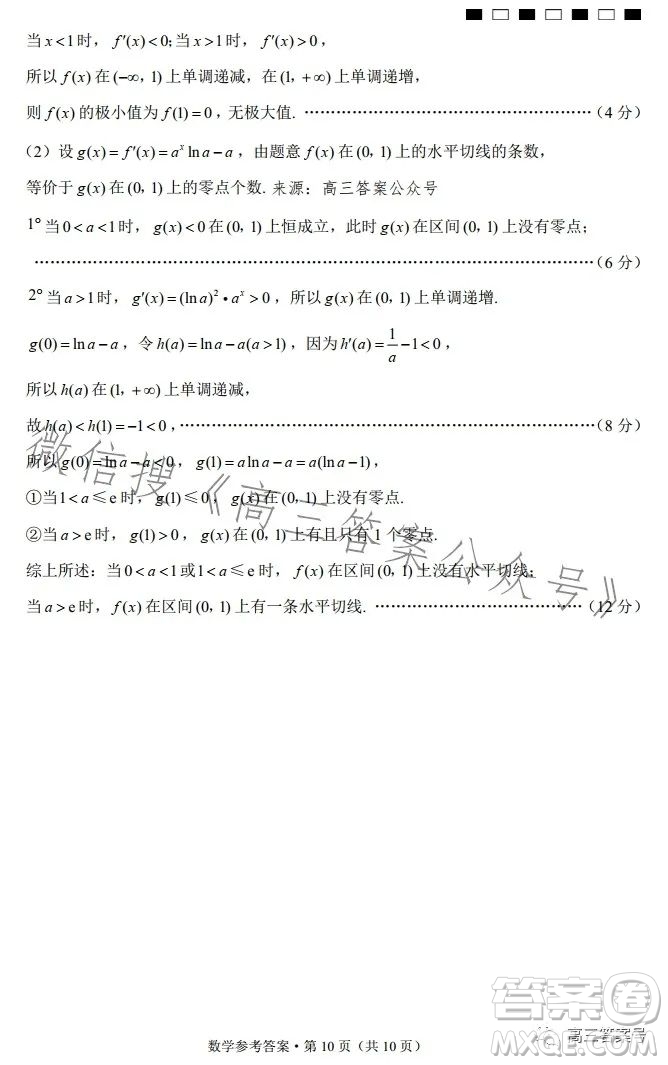 当 x < 1 时， f′(x) < 0; 当 x > 1 时， f′(x) > 0 ，
所以 f(x) 在 (−∞, 1) 上单调递减，在 (1, +∞) 上单调递增，
则 f(x) 的极小值为 f(1) = 0 , 无极大值. ……………………………………………（4 分）
（2）设 g(x) = f′(x) = aˣ ln a − a ，由题意 f(x) 在 (0, 1) 上的水平切线的条数，
等价于 g(x) 在 (0, 1) 上的零点个数. 来源：高三答案公众号
1° 当 0 < a < 1 时， g(x) < 0 在 (0, 1) 上恒成立，此时 g(x) 在区间 (0, 1) 上没有零点；
……………………………………………………………………………………（6 分）
2° 当 a > 1 时， g′(x) = (ln a)² • aˣ > 0 ，所以 g(x) 在 (0, 1) 上单调递增.
g(0) = ln a − a ，令 h(a) = ln a − a (a > 1) ，因为 h′(a) = 1/a − 1 < 0 ，
所以 h(a) 在 (1, +∞) 上单调递减，
故 h(a) < h(1) = −1 < 0 , ……………………………………………………………（8 分）
所以 g(0) = ln a − a < 0 ， g(1) = a ln a − a = a(ln a − 1) ，
①当 1 < a ≤ e 时， g(1) ≤ 0 ， g(x) 在 (0, 1) 上没有零点.
②当 a > e 时， g(1) > 0 ， g(x) 在 (0, 1) 上有且只有 1 个零点.
综上所述：当 0 < a < 1 或 1 < a ≤ e 时， f(x) 在区间 (0, 1) 上没有水平切线；
当 a > e 时， f(x) 在区间 (0, 1) 上有一条水平切线. ………………………………（12 分）
微信搜《高三答案公众号》
答案卷
高三答案号
MXQE.COM
数学参考答案 • 第 10 页（共 10 页）